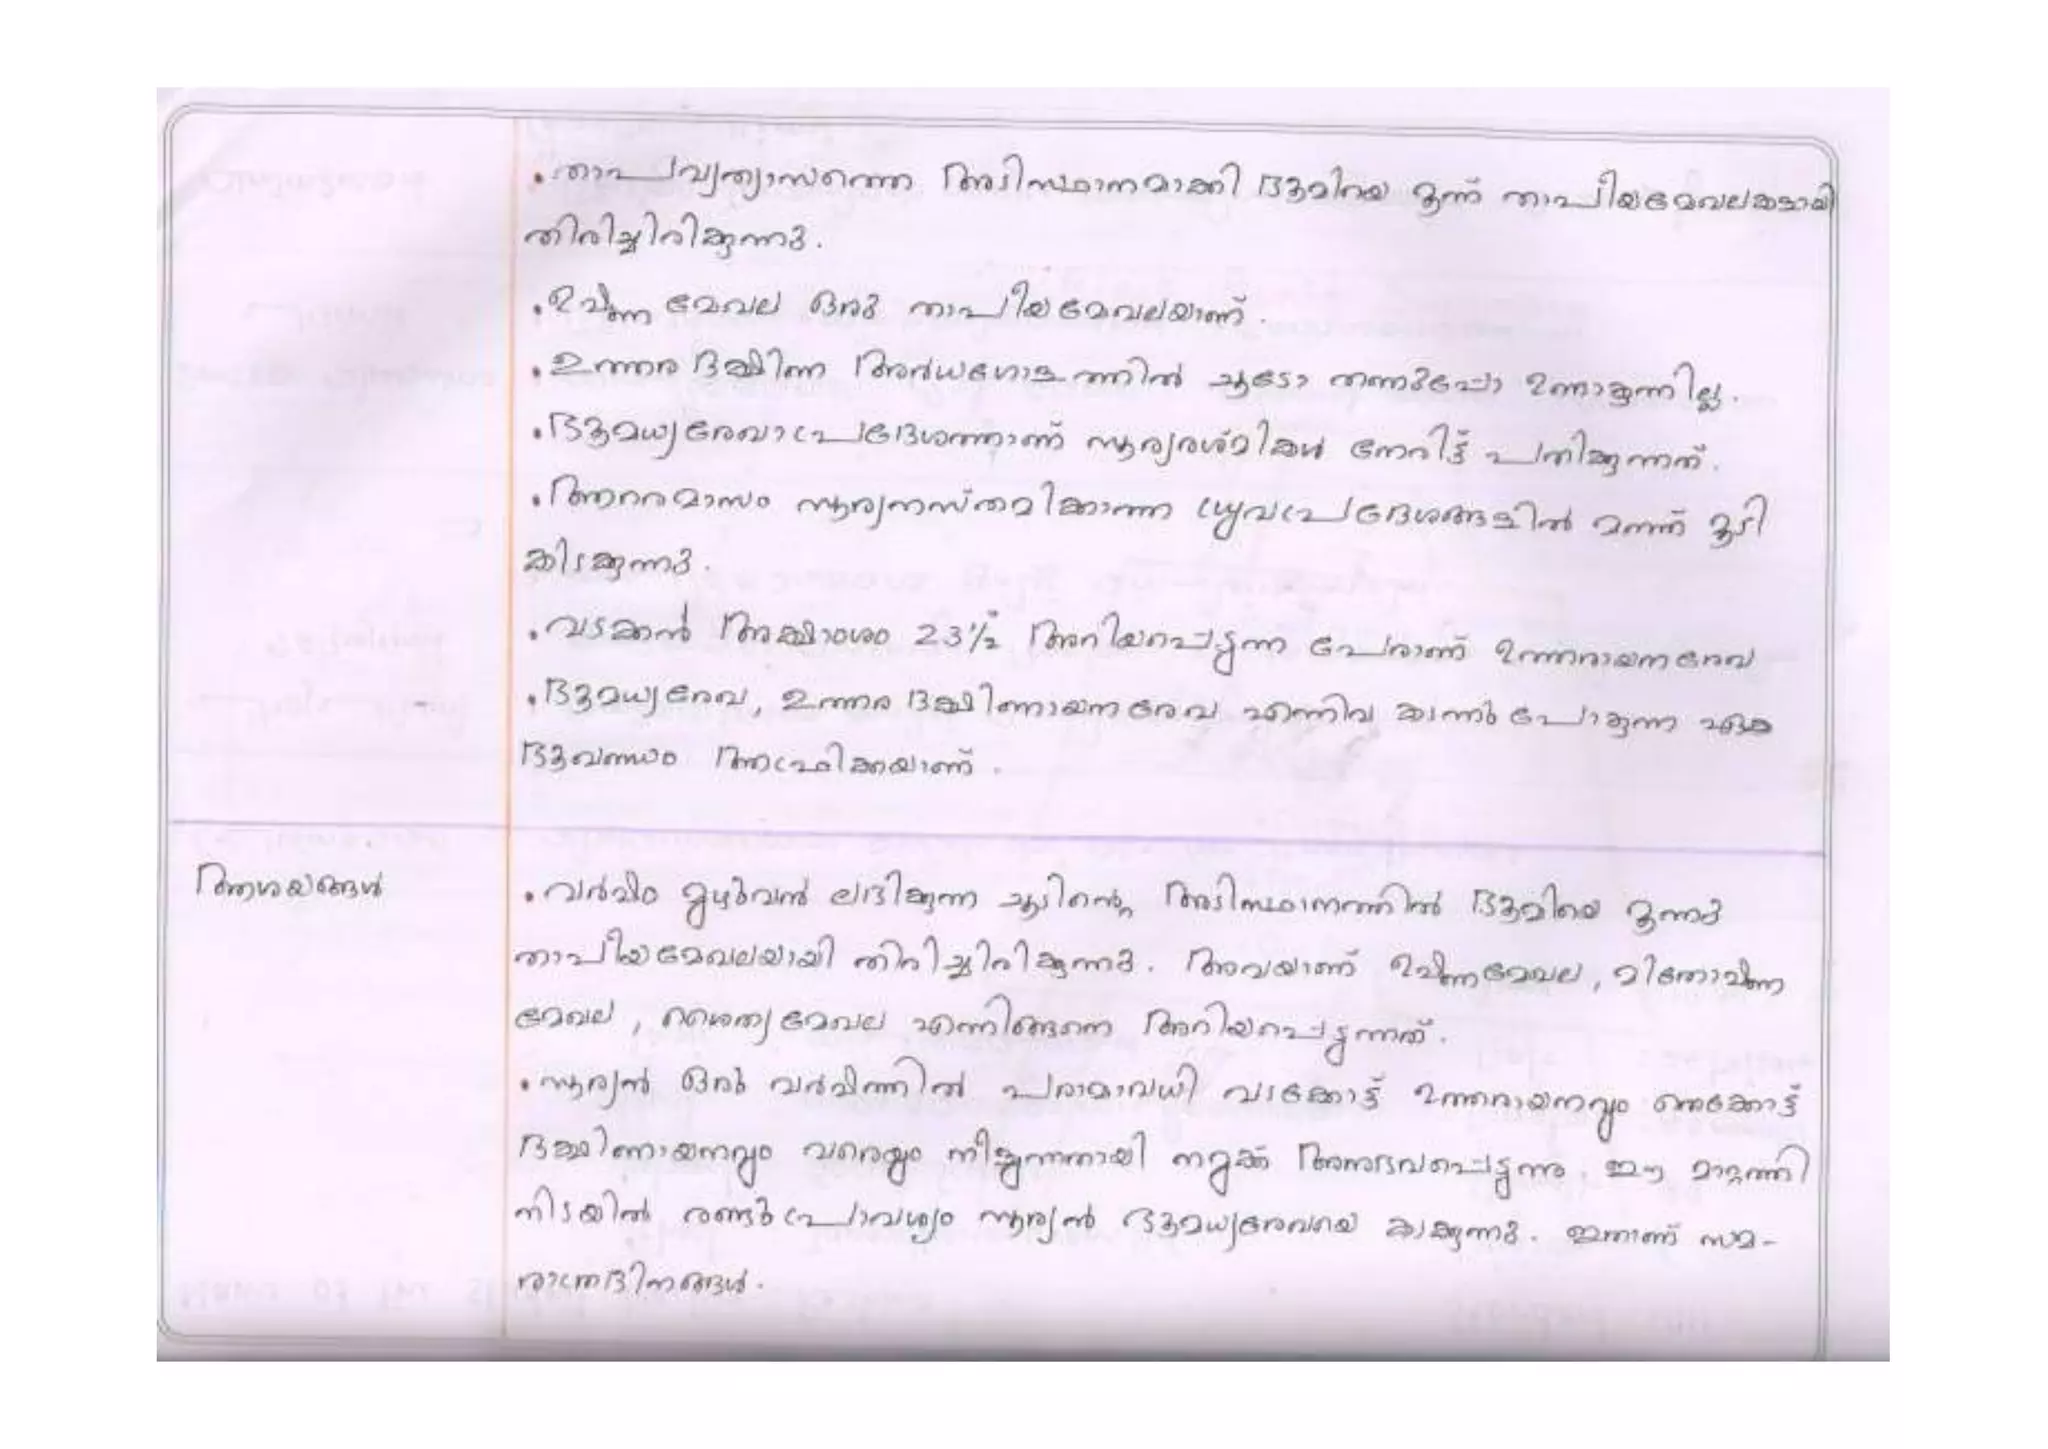 • താപവ്യത്യാസത്തെ അടിസ്ഥാനമാക്കി ഭൂമിയെ മൂന്ന് താപീയമേഖലകളായി
തിരിച്ചിരിക്കുന്നു.
• ഉഷ്ണ മേഖല ഒരു താപീയമേഖലയാണ്.
• ഉത്തര ദക്ഷിണ അർധഗോളത്തിൽ ചൂടോ തണുപ്പോ ഉണ്ടാകുന്നില്ല.
• ഭൂമധ്യരേഖാപ്രദേശത്താണ് സൂര്യരശ്മികൾ നേരിട്ട് പതിക്കുന്നത്.
• ആറുമാസം സൂര്യനസ്തമിക്കാത്ത ധ്രുവപ്രദേശങ്ങളിൽ മഞ്ഞ് മൂടി
കിടക്കുന്നു.
• വടക്കൻ അക്ഷാംശം 23½° അറിയപ്പെടുന്ന പേരാണ് ഉത്തരായനരേഖ
• ഭൂമധ്യരേഖ, ഉത്തര ദക്ഷിണായനരേഖ എന്നിവ കടന്നു പോകുന്ന ഏക
ഭൂഖണ്ഡം ആഫ്രിക്കയാണ്.
ആശയങ്ങൾ
• വർഷം മുഴുവൻ ലഭിക്കുന്ന ചൂടിന്റെ അടിസ്ഥാനത്തിൽ ഭൂമിയെ മൂന്നു
താപീയമേഖലയായി തിരിച്ചിരിക്കുന്നു. അവയാണ് ഉഷ്ണമേഖല, മിതോഷ്ണ
മേഖല, ശൈത്യമേഖല എന്നിങ്ങനെ അറിയപ്പെടുന്നത്.
• സൂര്യൻ ഒരു വർഷത്തിൽ പരമാവധി വടക്കോട്ട് ഉത്തരായനവും തെക്കോട്ട്
ദക്ഷിണായനവും വരെയും നീങ്ങുന്നതായി നമുക്ക് അനുഭവപ്പെടുന്നു. ഈ മാറ്റത്തി
നിടയിൽ രണ്ടു പ്രാവശ്യം സൂര്യൻ ഭൂമധ്യരേഖയെ കടക്കുന്നു. ഇതാണ് സമ-
രാത്രദിനങ്ങൾ.